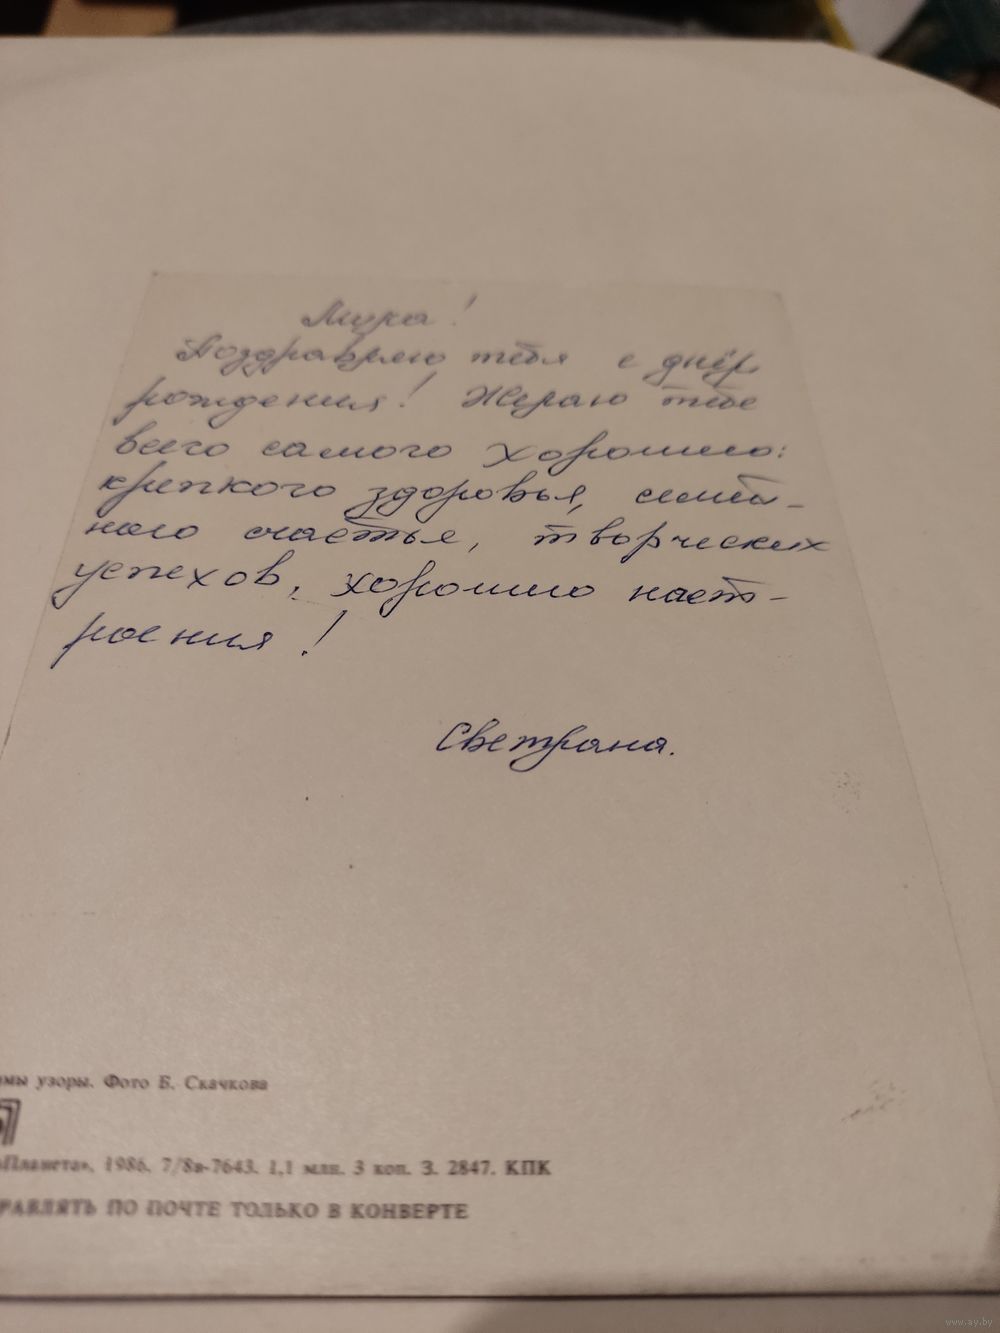 Мура!
Поздравляю тебя с днём
рождения! Желаю тебе
всего самого хорошего:
крепкого здоровья, семей-
ного счастья, творческих
успехов, хорошего наст-
роения!
Светлана.
имы узоры. Фото Б. Скачкова
«Планета», 1986. 7/8в-7643. 1,1 млн. 3 коп. З. 2847. КПК
РАВЛЯТЬ ПО ПОЧТЕ ТОЛЬКО В КОНВЕРТЕ
www.ay.by